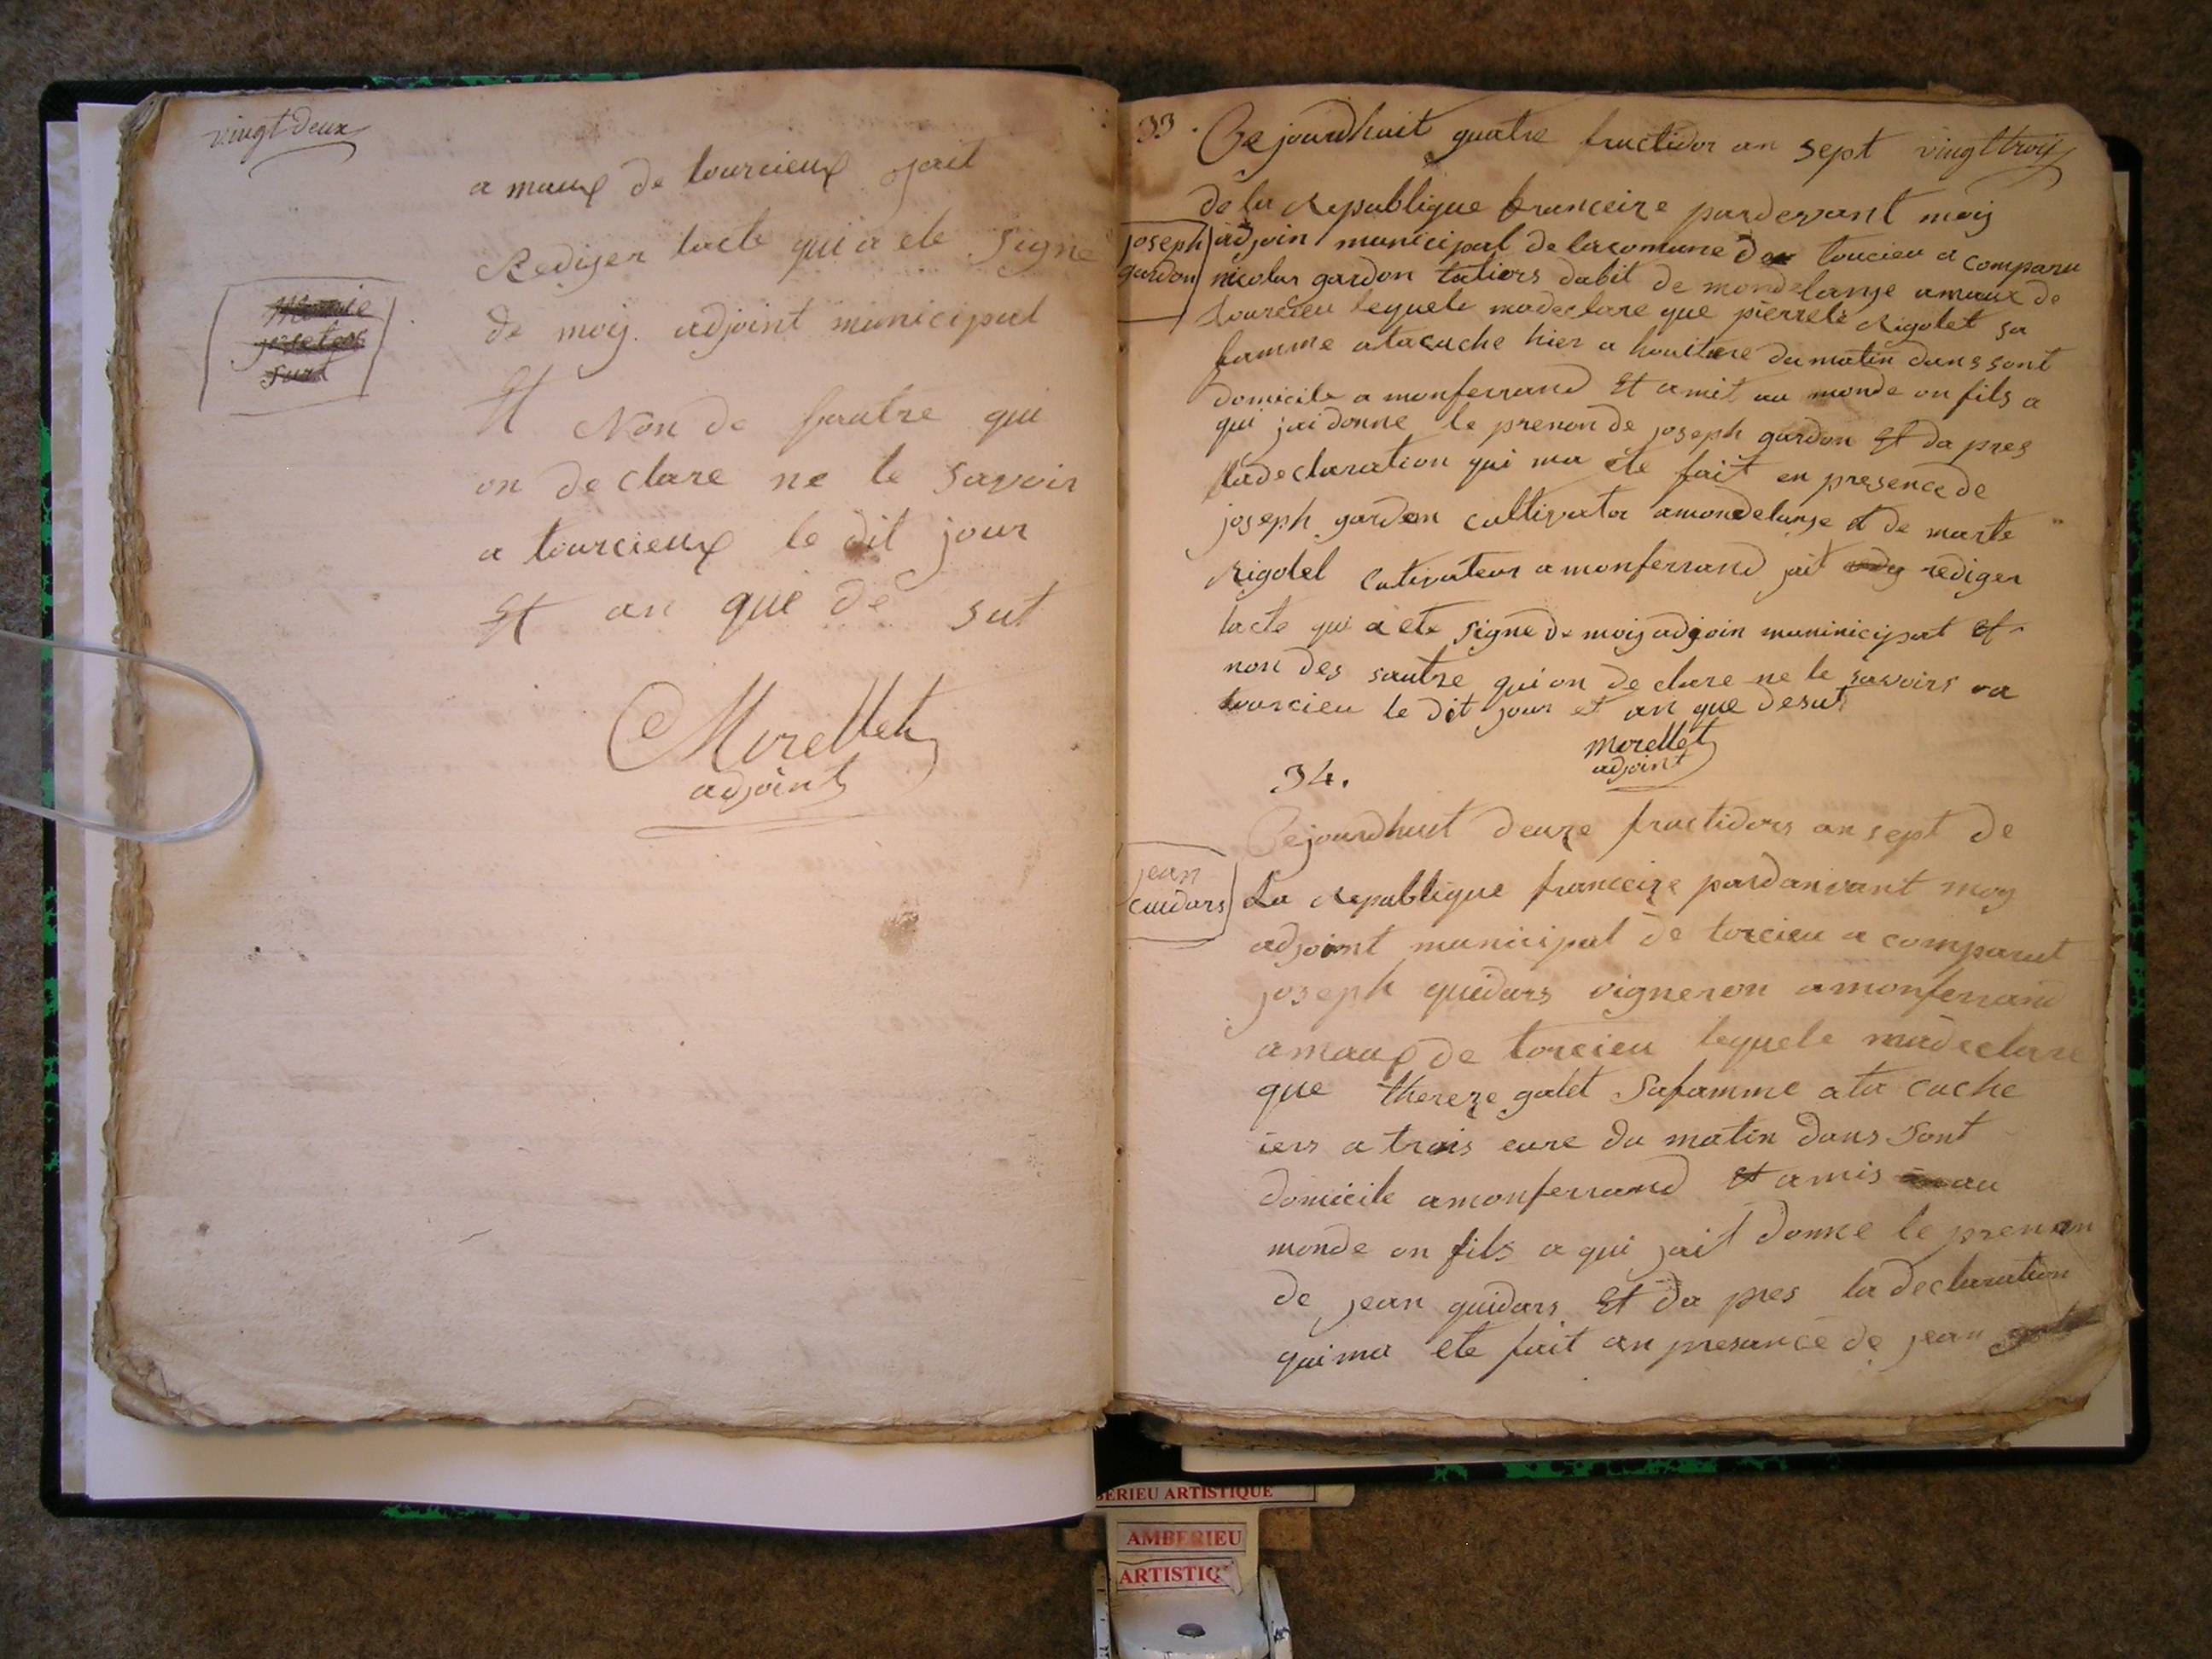 vingt deux
a maux de tourcieux jait
Rediger lacte qui a ete signe
de moij adjoint municipal
Et Non de sautre qui
on declare ne le savoir
a tourcieux le dit jour
Et an que de sut
Morellet
adjoint
Marie
33. Cejourdhuit quatre fructidor an sept vingt trois
de la Republique franceize pardevant moij
joseph
gardon
adjoin municipal de lacomune de toucieu a comparu
nicolas gardon taliors dabit de mondelange amaux de
tourcieu lequele madeclare que pierrete Rigolet sa
famme atacuche hier a houiteure du matin dans sont
domicile a monferrand Et amit au monde on fils a
qui jai donne le prenon de joseph gardon Et da pres
ladeclaration qui ma ete fait en presence de
joseph gardon cultivator amondelange et de marte
Rigolel Cutivateur a monferrand jait redy rediger
lacte qui a ete signe de moij adjoin muninicipat et
non des sautre qui on declare ne le savoirs a
tourcieu le dit jour et an que desut
morellet
adjoint
34.
Cejourdhuit deuze fructidors an sept de
jean
cuidars
La Republique franceize pardanvant moij
adjoint municipal de torcieu a comparut
joseph quidars vigneron amonferrand
amaux de torcieu lequele madeclare
que thereze galet safamme ata cuche
iers a trois eure du matin dans sont
domicile amonferrand Et amis au
monde on fils a qui jait donne le prenon
de jean guidars Et da pres la declaration
qui ma ete fait an presance de jean
BERIEU ARTISTIQUE
AMBERIEU
ARTISTIQ